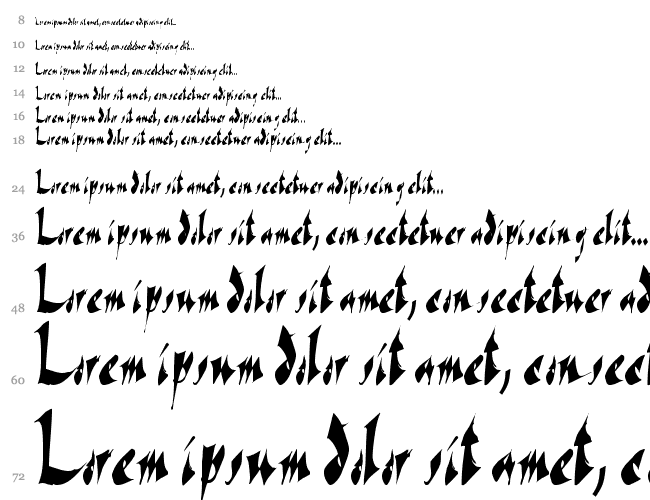 8 Lorem ipsum dolor sit amet, consectetuer adipiscing elit...
10 Lorem ipsum dolor sit amet, consectetuer adipiscing elit...
12 Lorem ipsum dolor sit amet, consectetuer adipiscing elit...
14 Lorem ipsum dolor sit amet, consectetuer adipiscing elit...
16 Lorem ipsum dolor sit amet, consectetuer adipiscing elit...
18 Lorem ipsum dolor sit amet, consectetuer adipiscing elit...
24 Lorem ipsum dolor sit amet, consectetuer adipiscing elit...
36 Lorem ipsum dolor sit amet, consectetuer adipiscing elit...
48 Lorem ipsum dolor sit amet, consectetuer ad
60 Lorem ipsum dolor sit amet, consect
72 Lorem ipsum dolor sit amet, co